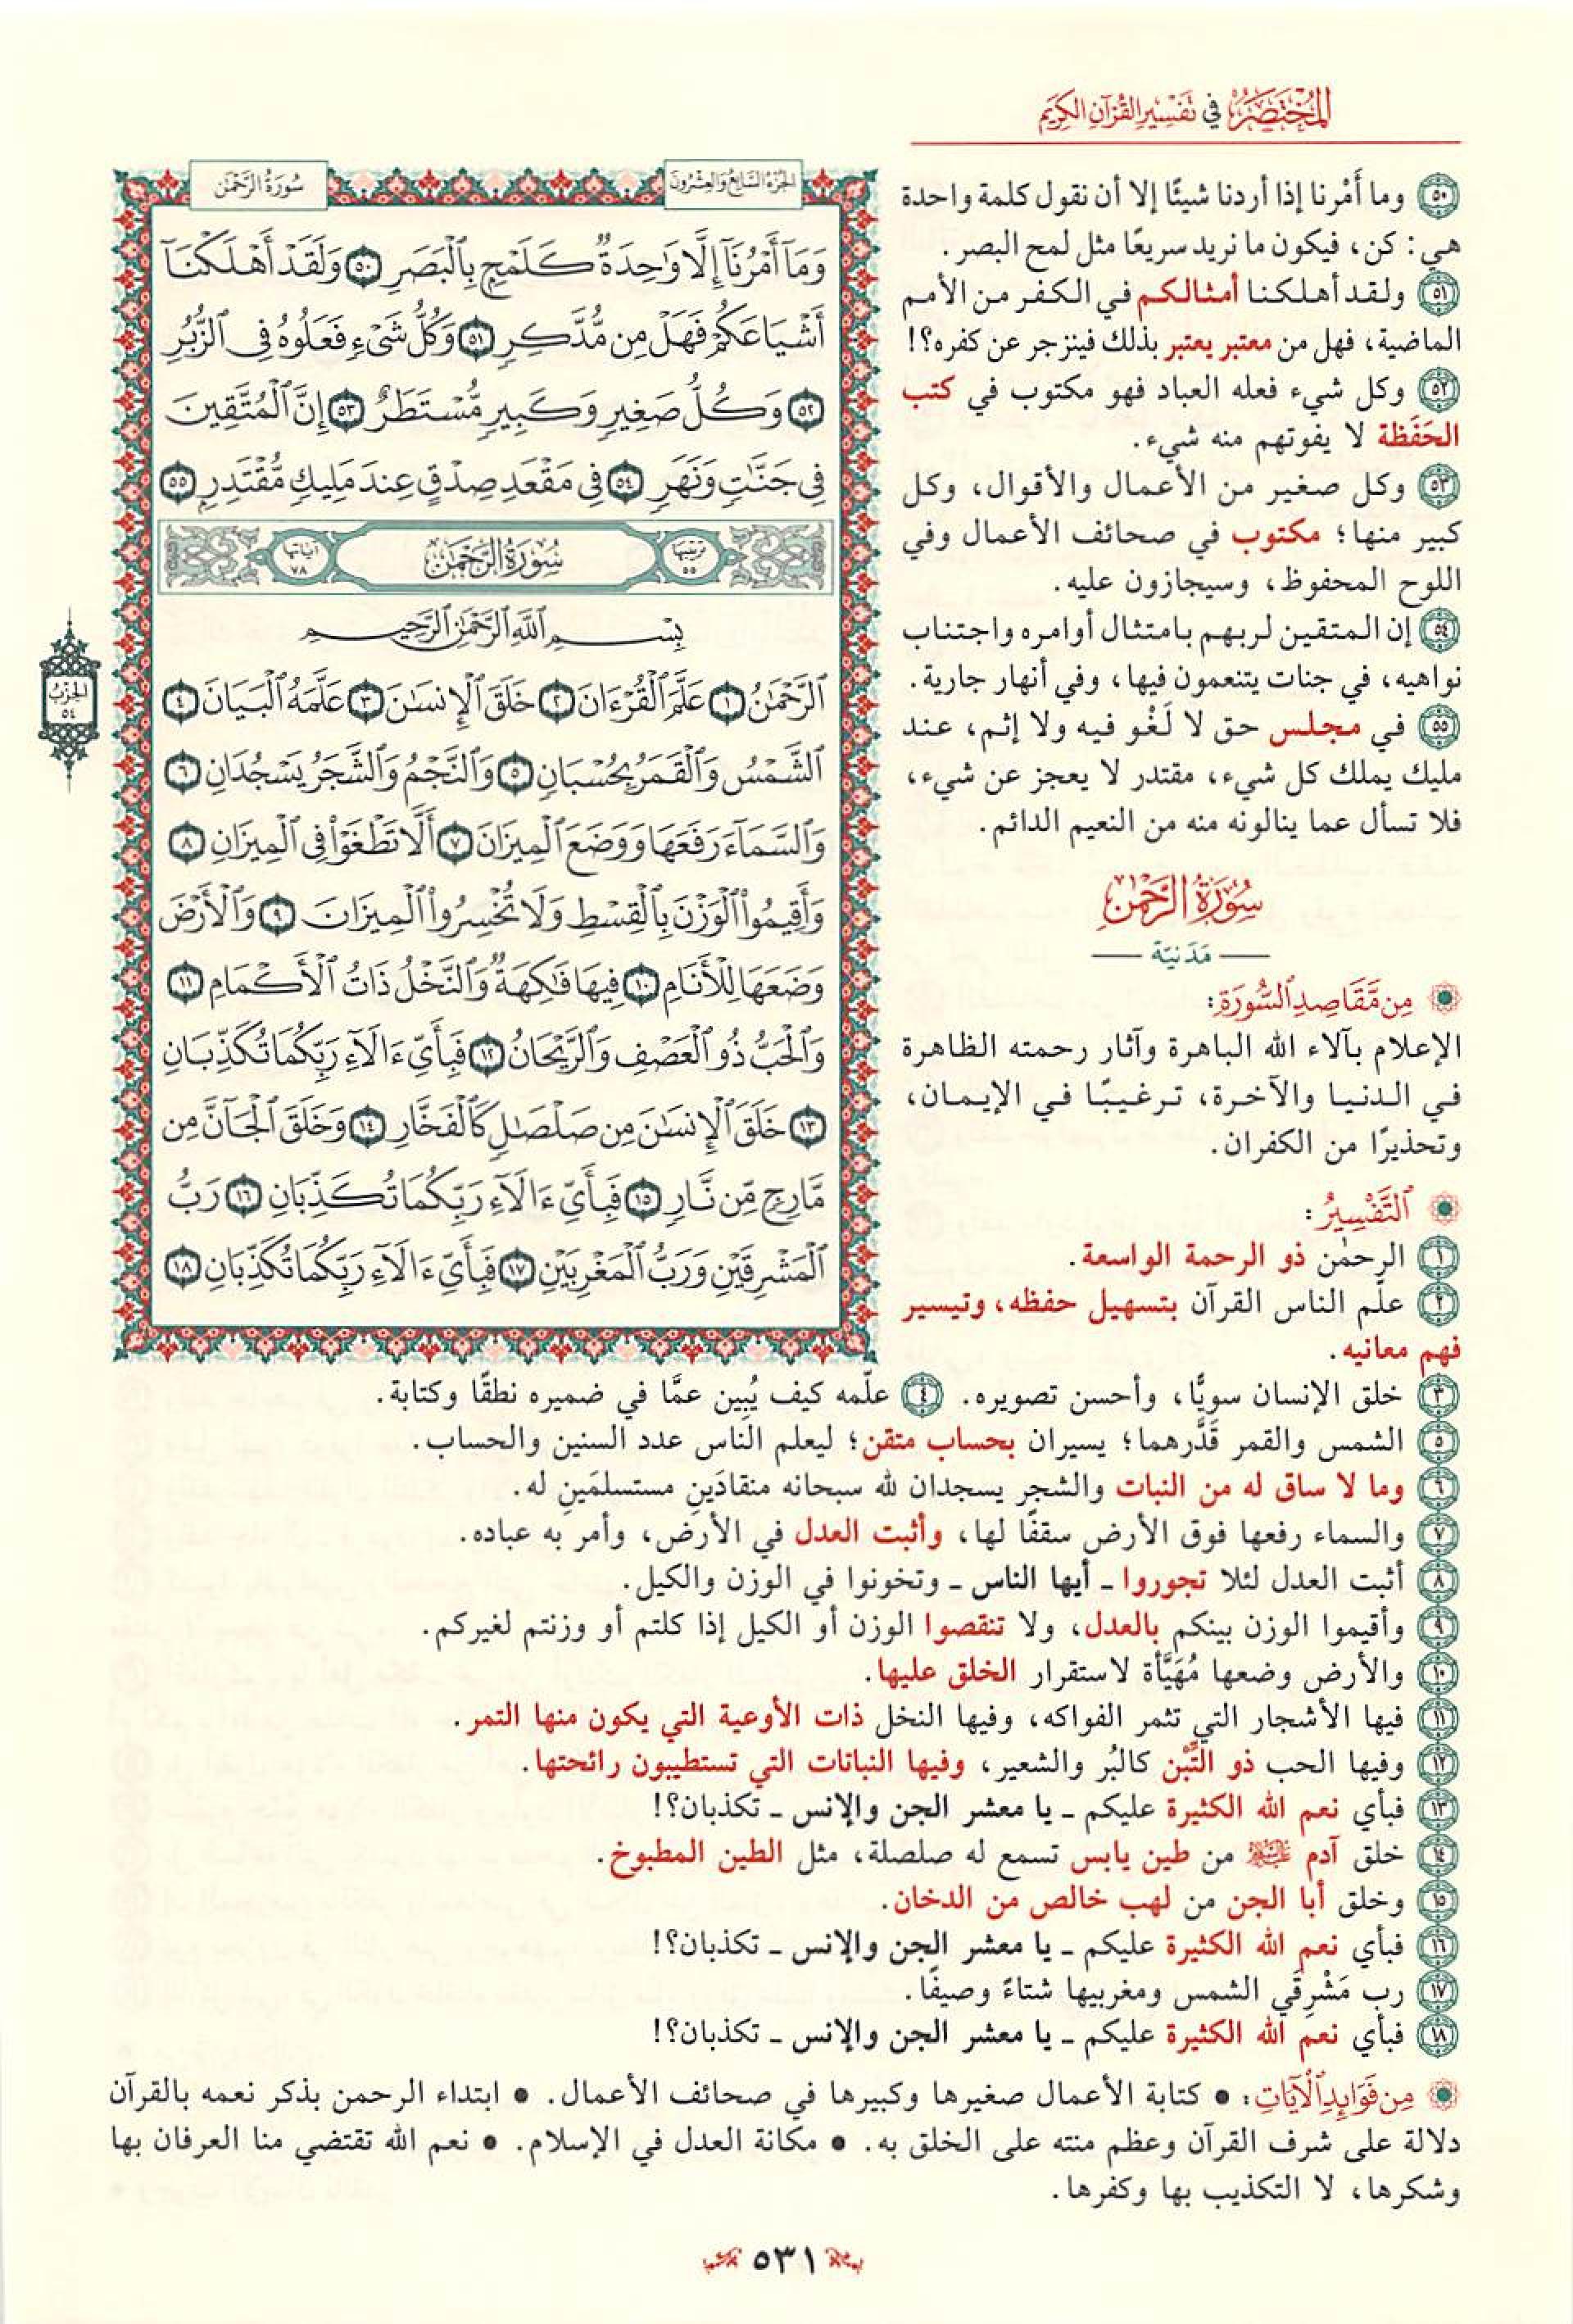 المختصر في تفسير القرآن الكريم
٥٠ وما أَمْرنا إذا أردنا شيئًا إلا أن نقول كلمة واحدة
هي: كن، فيكون ما نريد سريعًا مثل لمح البصر.
٥١ ولقد أهلكنا أمثالكم في الكفر من الأمم
الماضية، فهل من معتبر يعتبر بذلك فينزجر عن كفره؟!
٥٢ وكل شيء فعله العباد فهو مكتوب في كتب
الحَفَظة لا يفوتهم منه شيء.
٥٣ وكل صغير من الأعمال والأقوال، وكل
كبير منها؛ مكتوب في صحائف الأعمال وفي
اللوح المحفوظ، وسيجازون عليه.
٥٤ إن المتقين لربهم بامتثال أوامره واجتناب
نواهيه، في جنات يتنعمون فيها، وفي أنهار جارية.
٥٥ في مجلس حق لا لَغْو فيه ولا إثم، عند
مليك يملك كل شيء، مقتدر لا يعجز عن شيء،
فلا تسأل عما ينالونه منه من النعيم الدائم.
سُورَةُ الرَّحْمَٰن
مَدَنيّة
مِن مَّقَاصِدِ ٱلسُّورَةِ:
الإعلام بآلاء الله الباهرة وآثار رحمته الظاهرة
في الدنيا والآخرة، ترغيبًا في الإيمان،
وتحذيرًا من الكفران.
ٱلتَّفْسِيرُ:
١ الرحمٰن ذو الرحمة الواسعة.
٢ علّم الناس القرآن بتسهيل حفظه، وتيسير
فهم معانيه.
الجُزْءُ السَّابِعُ وَالعِشْرُونَ
سُورَةُ الرَّحْمَٰن
وَمَآ أَمْرُنَآ إِلَّا وَٰحِدَةٌ كَلَمْحٍۭ بِٱلْبَصَرِ ٥٠ وَلَقَدْ أَهْلَكْنَآ
أَشْيَاعَكُمْ فَهَلْ مِن مُّدَّكِرٍ ٥١ وَكُلُّ شَىْءٍ فَعَلُوهُ فِى ٱلزُّبُرِ
٥٢ وَكُلُّ صَغِيرٍ وَكَبِيرٍ مُّسْتَطَرٌ ٥٣ إِنَّ ٱلْمُتَّقِينَ
فِى جَنَّٰتٍ وَنَهَرٍ ٥٤ فِى مَقْعَدِ صِدْقٍ عِندَ مَلِيكٍ مُّقْتَدِرٍۭ ٥٥
ترتيبها ٥٥ سُورَةُ الرَّحْمَٰن آياتها ٧٨
بِسْمِ ٱللَّهِ ٱلرَّحْمَٰنِ ٱلرَّحِيمِ
ٱلرَّحْمَٰنُ ١ عَلَّمَ ٱلْقُرْءَانَ ٢ خَلَقَ ٱلْإِنسَٰنَ ٣ عَلَّمَهُ ٱلْبَيَانَ ٤
ٱلشَّمْسُ وَٱلْقَمَرُ بِحُسْبَانٍ ٥ وَٱلنَّجْمُ وَٱلشَّجَرُ يَسْجُدَانِ ٦
وَٱلسَّمَآءَ رَفَعَهَا وَوَضَعَ ٱلْمِيزَانَ ٧ أَلَّا تَطْغَوْا۟ فِى ٱلْمِيزَانِ ٨
وَأَقِيمُوا۟ ٱلْوَزْنَ بِٱلْقِسْطِ وَلَا تُخْسِرُوا۟ ٱلْمِيزَانَ ٩ وَٱلْأَرْضَ
وَضَعَهَا لِلْأَنَامِ ١٠ فِيهَا فَٰكِهَةٌ وَٱلنَّخْلُ ذَاتُ ٱلْأَكْمَامِ ١١
وَٱلْحَبُّ ذُو ٱلْعَصْفِ وَٱلرَّيْحَانُ ١٢ فَبِأَىِّ ءَالَآءِ رَبِّكُمَا تُكَذِّبَانِ
١٣ خَلَقَ ٱلْإِنسَٰنَ مِن صَلْصَٰلٍ كَٱلْفَخَّارِ ١٤ وَخَلَقَ ٱلْجَآنَّ مِن
مَّارِجٍ مِّن نَّارٍ ١٥ فَبِأَىِّ ءَالَآءِ رَبِّكُمَا تُكَذِّبَانِ ١٦ رَبُّ
ٱلْمَشْرِقَيْنِ وَرَبُّ ٱلْمَغْرِبَيْنِ ١٧ فَبِأَىِّ ءَالَآءِ رَبِّكُمَا تُكَذِّبَانِ ١٨
الحِزْبُ
٥٤
٣ خلق الإنسان سويًّا، وأحسن تصويره. ٤ علّمه كيف يُبِين عمَّا في ضميره نطقًا وكتابة.
٥ الشمس والقمر قَدَّرهما؛ يسيران بحساب متقن؛ ليعلم الناس عدد السنين والحساب.
٦ وما لا ساق له من النبات والشجر يسجدان لله سبحانه منقادَينِ مستسلمَينِ له.
٧ والسماء رفعها فوق الأرض سقفًا لها، وأثبت العدل في الأرض، وأمر به عباده.
٨ أثبت العدل لئلا تجوروا ـ أيها الناس ـ وتخونوا في الوزن والكيل.
٩ وأقيموا الوزن بينكم بالعدل، ولا تنقصوا الوزن أو الكيل إذا كلتم أو وزنتم لغيركم.
١٠ والأرض وضعها مُهَيَّأة لاستقرار الخلق عليها.
١١ فيها الأشجار التي تثمر الفواكه، وفيها النخل ذات الأوعية التي يكون منها التمر.
١٢ وفيها الحب ذو التِّبْن كالبُر والشعير، وفيها النباتات التي تستطيبون رائحتها.
١٣ فبأي نعم الله الكثيرة عليكم ـ يا معشر الجن والإنس ـ تكذبان؟!
١٤ خلق آدم عليه السلام من طين يابس تسمع له صلصلة، مثل الطين المطبوخ.
١٥ وخلق أبا الجن من لهب خالص من الدخان.
١٦ فبأي نعم الله الكثيرة عليكم ـ يا معشر الجن والإنس ـ تكذبان؟!
١٧ رب مَشْرِقَي الشمس ومغربيها شتاءً وصيفًا.
١٨ فبأي نعم الله الكثيرة عليكم ـ يا معشر الجن والإنس ـ تكذبان؟!
مِن فَوَائِدِ ٱلْآيَاتِ: • كتابة الأعمال صغيرها وكبيرها في صحائف الأعمال. • ابتداء الرحمن بذكر نعمه بالقرآن
دلالة على شرف القرآن وعظم منته على الخلق به. • مكانة العدل في الإسلام. • نعم الله تقتضي منا العرفان بها
وشكرها، لا التكذيب بها وكفرها.
٥٣١